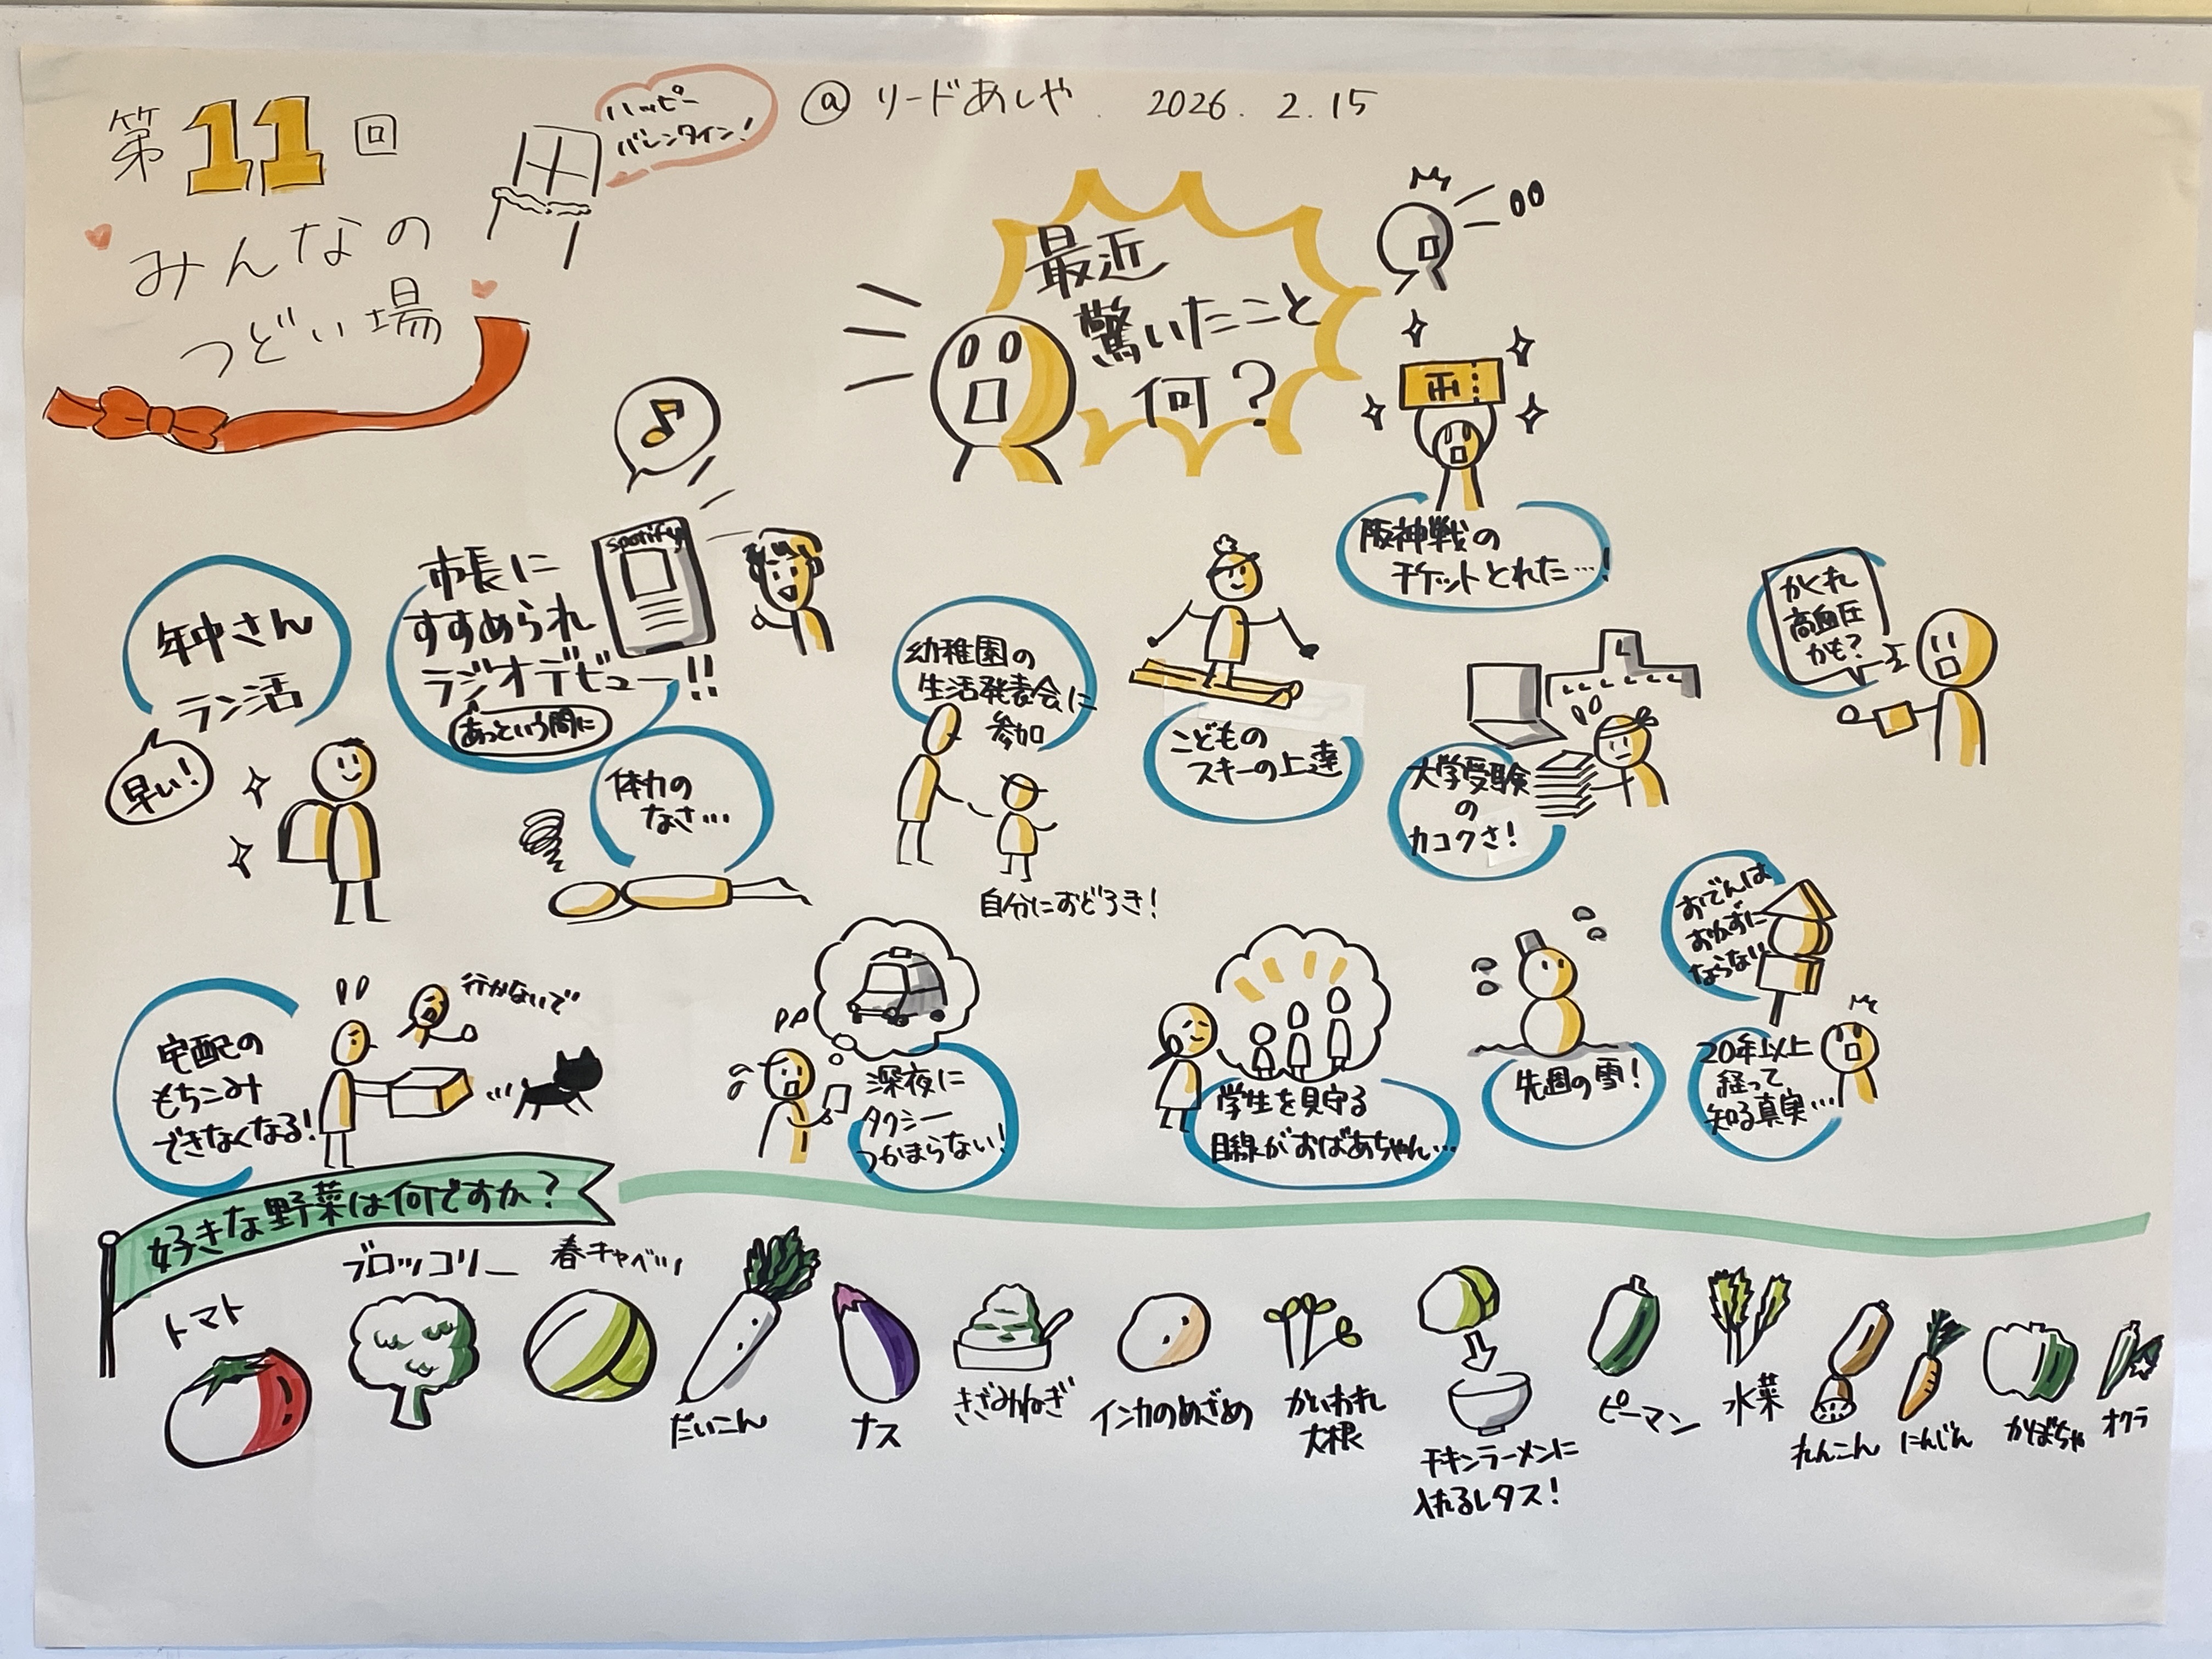 第11回
みんなの
つどい場
ハッピー
バレンタイン!
@リードあしや. 2026. 2. 15
最近
驚いたこと
何?
阪神戦の
チケットとれた…!
年中さん
ラン活
早い!
市長に
すすめられ
ラジオデビュー!!
あっという間に
spotify
体力の
なさ…
幼稚園の
生活発表会に
参加
自分におどろき!
こどもの
スキーの上達
大学受験
の
カコクさ!
かくれ
高血圧
かも?
宅配の
もちこみ
できなくなる!
行かないで
深夜に
タクシー
つかまらない!
学生を見守る
目線がおばあちゃん…
先週の雪!
おでんは
おかずに
ならない
20年以上
経って
知る真実…
好きな野菜は何ですか?
トマト
ブロッコリー
春キャベツ
だいこん
ナス
きざみねぎ
インカのめざめ
かいわれ
大根
チキンラーメンに
入れるレタス!
ピーマン
水菜
れんこん
にんじん
かぼちゃ
オクラ